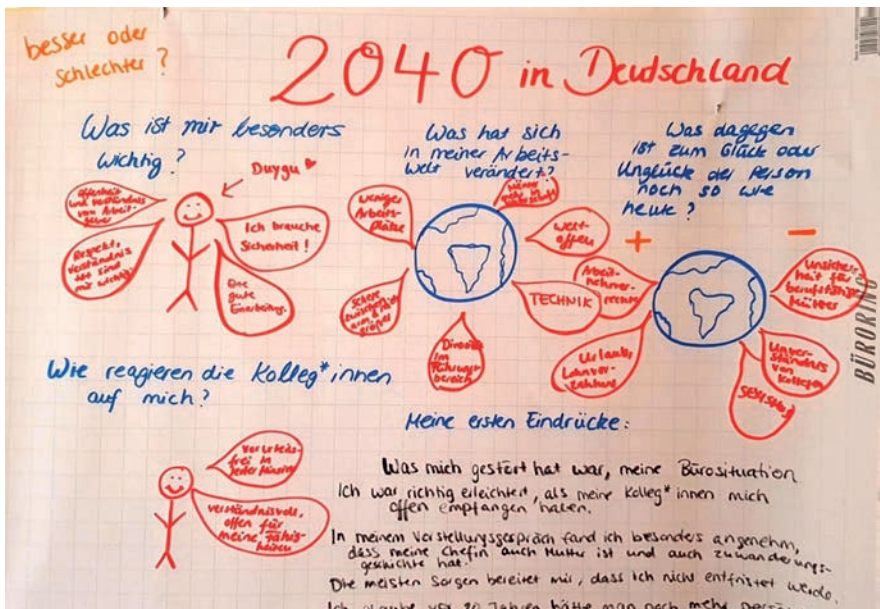 besser oder
schlechter?
2040 in Deutschland
Was ist mir besonders
wichtig?
Duygu
Offenheit
und Verständnis
von Arbeit-
geber
Respekt,
Verständnis
sind
mir wichtig!
Ich brauche
Sicherheit!
Eine
gute
Einarbeitung.
Was hat sich
in meiner Arbeits-
Welt verändert?
weniger
Arbeits-
plätze
Männer
mehr in
welt-
offen
TECHNIK
Schere
zwischen
arm & reich
größer
Diversität
im
Führungs-
bereich
Was dagegen
ist zum Glück oder
Unglück der Person
noch so wie
heute?
+
Arbeit-
nehmer-
rechte
Urlaub,
Lohnfor-
zahlung
-
Unsicher-
heit für
berufstätige
Mütter
Unver-
ständnis
von
Kollegen
SEXISMUS
BÜRORING
Wie reagieren die Kolleg*innen
auf mich?
Vorurteils-
frei in
jeder Hinsicht
verständnisvoll,
offen für
meine Fähig-
keiten
Meine ersten Eindrücke:
Was mich gestört hat war, meine Bürosituation
Ich war richtig erleichtert, als meine Kolleg*innen mich
offen empfangen haben.
In meinem Vorstellungsgespräch fand ich besonders angenehm,
dass meine Chefin auch Mutter ist und auch zuwanderungs-
geschichte hat.
Die meisten Sorgen bereitet mir, dass ich nicht entfristet werde.
Ich glaube vor 20 Jahren hätte man noch mehr